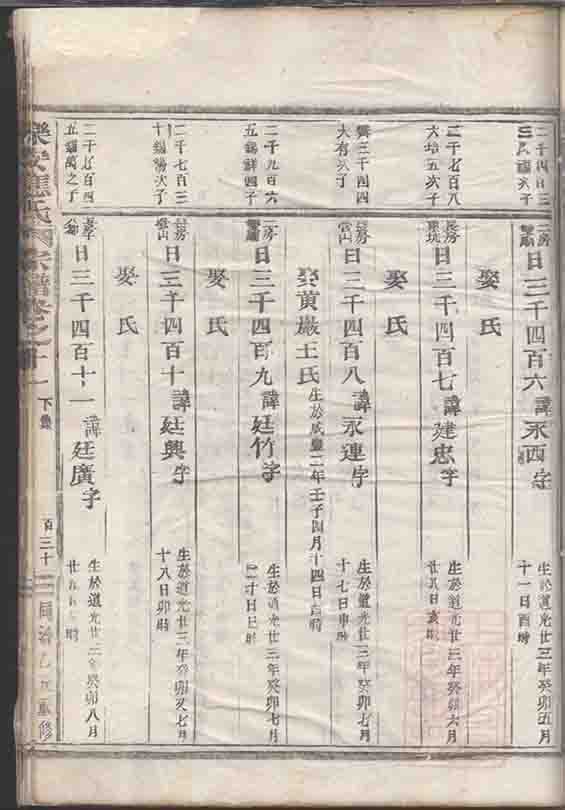 二千四百三
房
日三千四百六諱永西字
生於道光廿三年癸卯五月
十一日酉時
娶氏
二千七百八
大培五次子
房
日三千四百七諱建忠字
生於道光廿三年癸卯六月
廿八日亥時
娶氏
三千四四
大有次子
房
日三千四百八諱永連字
生於道光廿三年癸卯七月
十七日申時
娶黃巖王氏生於咸豐二年壬子四月十四日亥時
二千九百六
五錫祥四子
房
日三千四百九諱廷竹字
生於道光廿三年癸卯七月
二十日巳時
娶氏
二千七百三
十錫 次子
房
日三千四百十諱廷興字
生於道光廿三年癸卯又七月
十八日卯時
娶氏
二千七百四
五錫萬之子
日三千四百十一諱廷廣字
生於道光廿三年癸卯八月
廿 時
樂安 氏 宗譜卷之 十一
下
百三十
同治乙丑重修